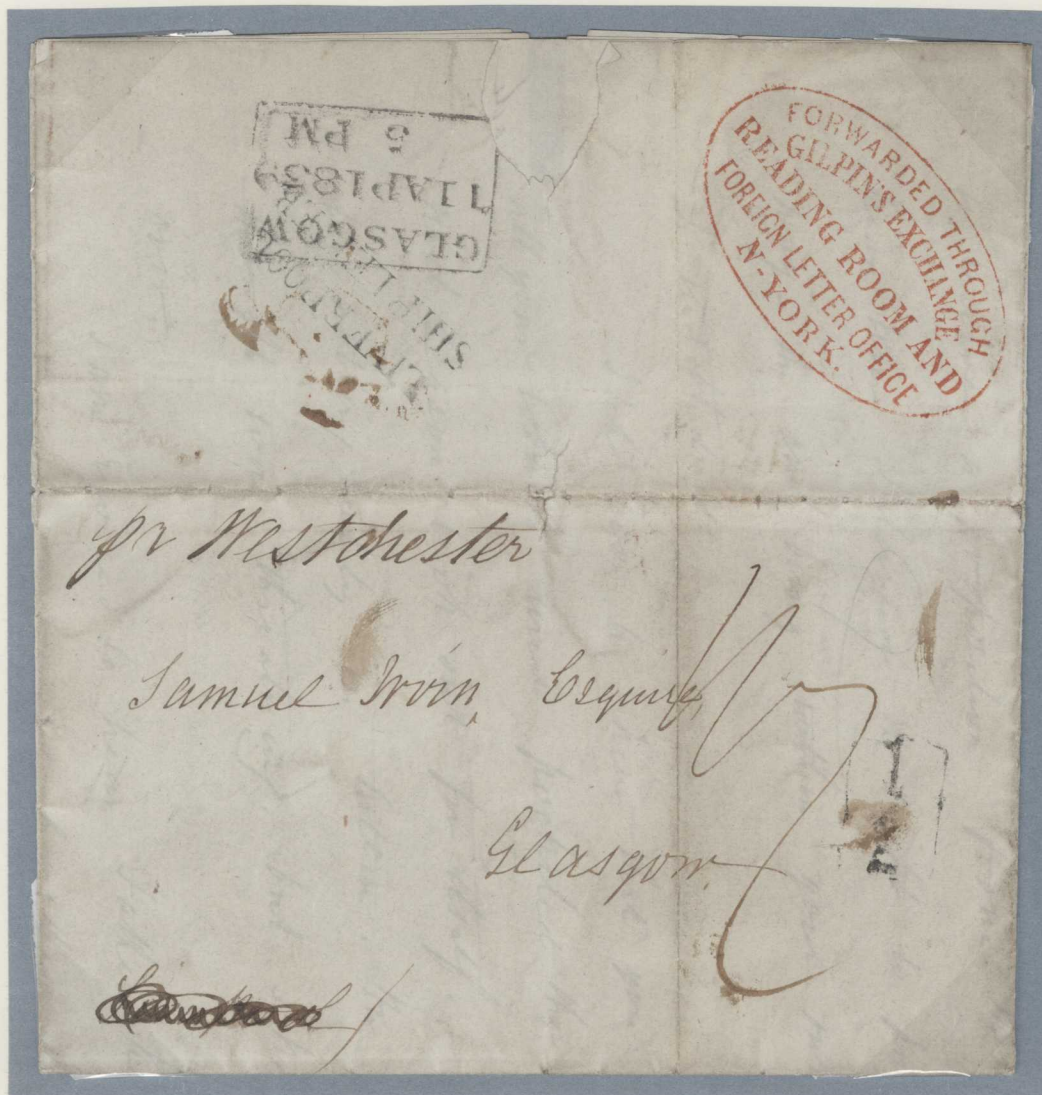 GLASGOW
11AP1839
5 PM
LIVERPOOL
SHIP LETTER
FORWARDED THROUGH
GILPIN'S EXCHANGE
READING ROOM AND
FOREIGN LETTER OFFICE
N-YORK.
pr Westchester
Samuel Irvin, Esquire,
Glasgow.
1
2